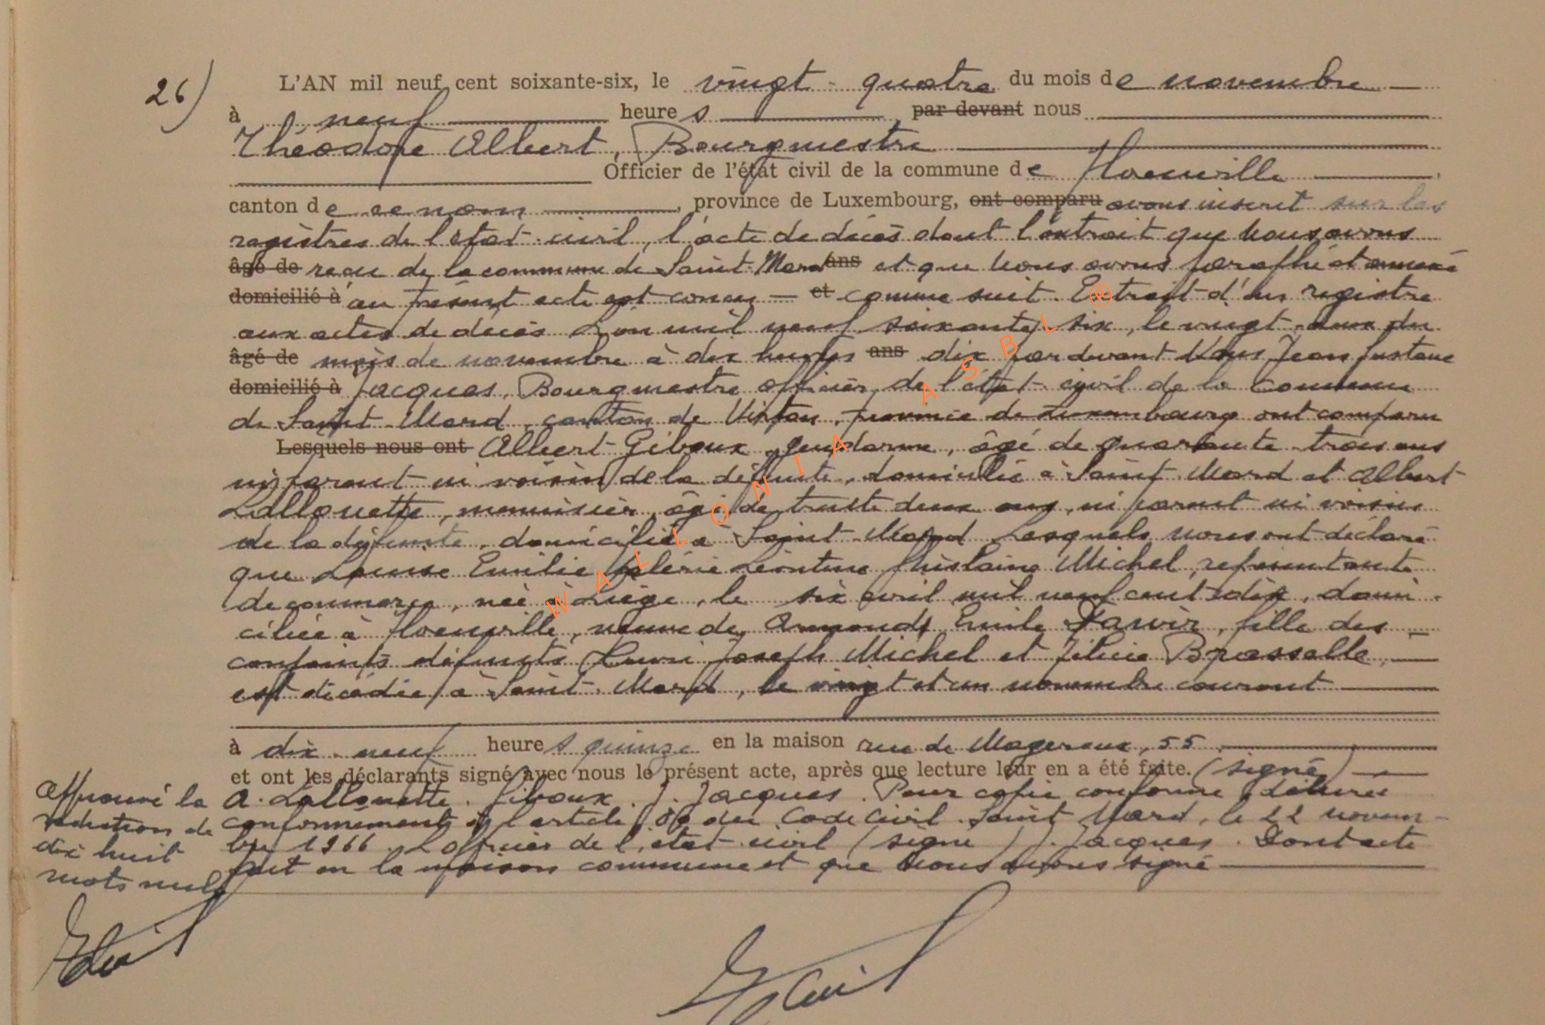 26)
L'AN mil neuf cent soixante-six, le vingt-quatre du mois de novembre
à neuf heures par devant nous
Théodore Albert, Bourgmestre
Officier de l'état civil de la commune de
canton de ce nom, province de Luxembourg, ont comparu avons inscrit sur les
registres de l'état-civil, l'acte de décès dont l'extrait que nous avons
âgé de reçu de la commune de Saint-Mard ans et que nous avons paraphé et annexé
domicilié à au présent acte est conçu et comme suit. Extrait d'un registre
aux actes de décès L'an mil neuf soixante six, le vingt-deux du
âgé de mois de novembre à dix heures ans dix par devant Nous Jean Gustave
domicilié à Jacques, Bourgmestre officier de l'état-civil de la Commune
de Saint-Mard, canton de Virton, province de Luxembourg ont comparu
Lesquels nous ont Albert Giboux, gendarme, âgé de quarante-trois ans
ni parent ni voisin de la défunte, domicilié à Saint Mard et Albert
Lallouette, menuisier, âgé de trente deux ans, ni parent ni voisin
de la défunte, domicilié à Saint-Mard Lesquels nous ont déclaré
que Louise Emilie Valérie Léontine Ghislaine Michel, représentante
de commerce, née à Liège, le six avril mil neuf cent dix, domi-
ciliée à, veuve de Armand Emile, fille des
conjoints défunts Henri Joseph Michel et Félicie Brasselle,
est décédée à Saint-Mard, le vingt et un novembre courant
à dix-neuf heures quinze en la maison rue de Mageroux, 55
et ont les déclarants signé avec nous le présent acte, après que lecture leur en a été faite. (signé)
A. Lallouette. Giboux. J. Jacques. Pour copie conforme délivrée
conformément à l'article 80 du Code Civil. Saint Mard, le 22 novem-
bre 1966. L'officier de l'état-civil (signé) J. Jacques. Dont acte
fait en la maison commune et que nous avons signé
Approuvé la
radiation de
dix huit
mots nuls
WALLONIA ASBL